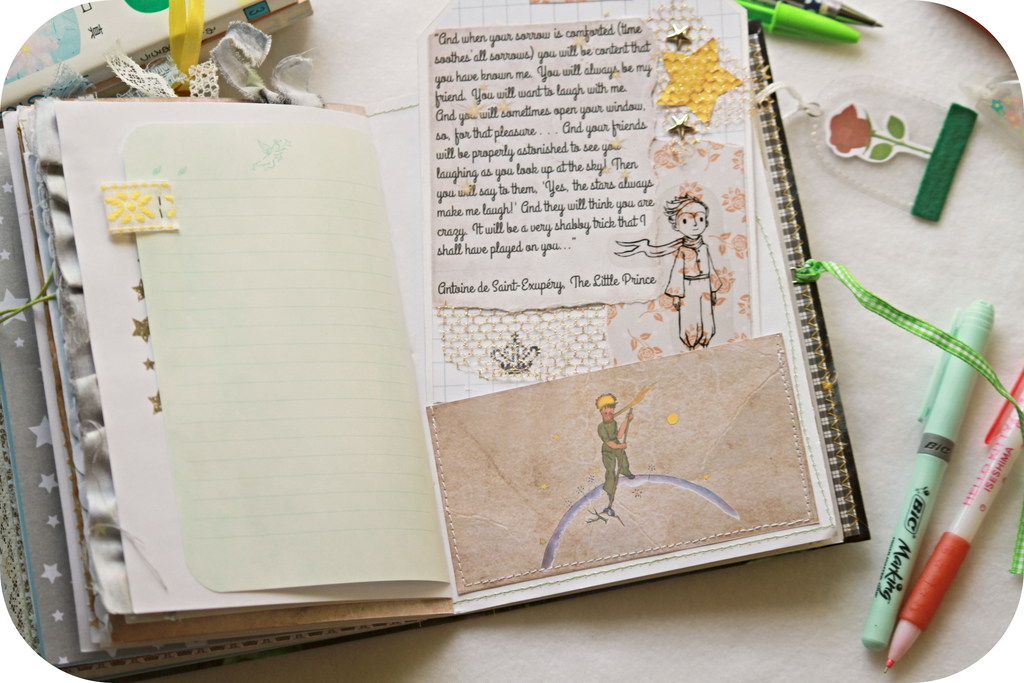 "And when your sorrow is comforted (time
soothes all sorrows) you will be content that
you have known me. You will always be my
friend. You will want to laugh with me.
And you will sometimes open your window,
so, for that pleasure . . . . And your friends
will be properly astonished to see you
laughing as you look up at the sky! Then
you will say to them, 'Yes, the stars always
make me laugh!' And they will think you are
crazy. It will be a very shabby trick that I
shall have played on you..."
Antoine de Saint-Exupéry, The Little Prince
真
BiC
BiC Marking
HELLO KITTY
ISESHIMA